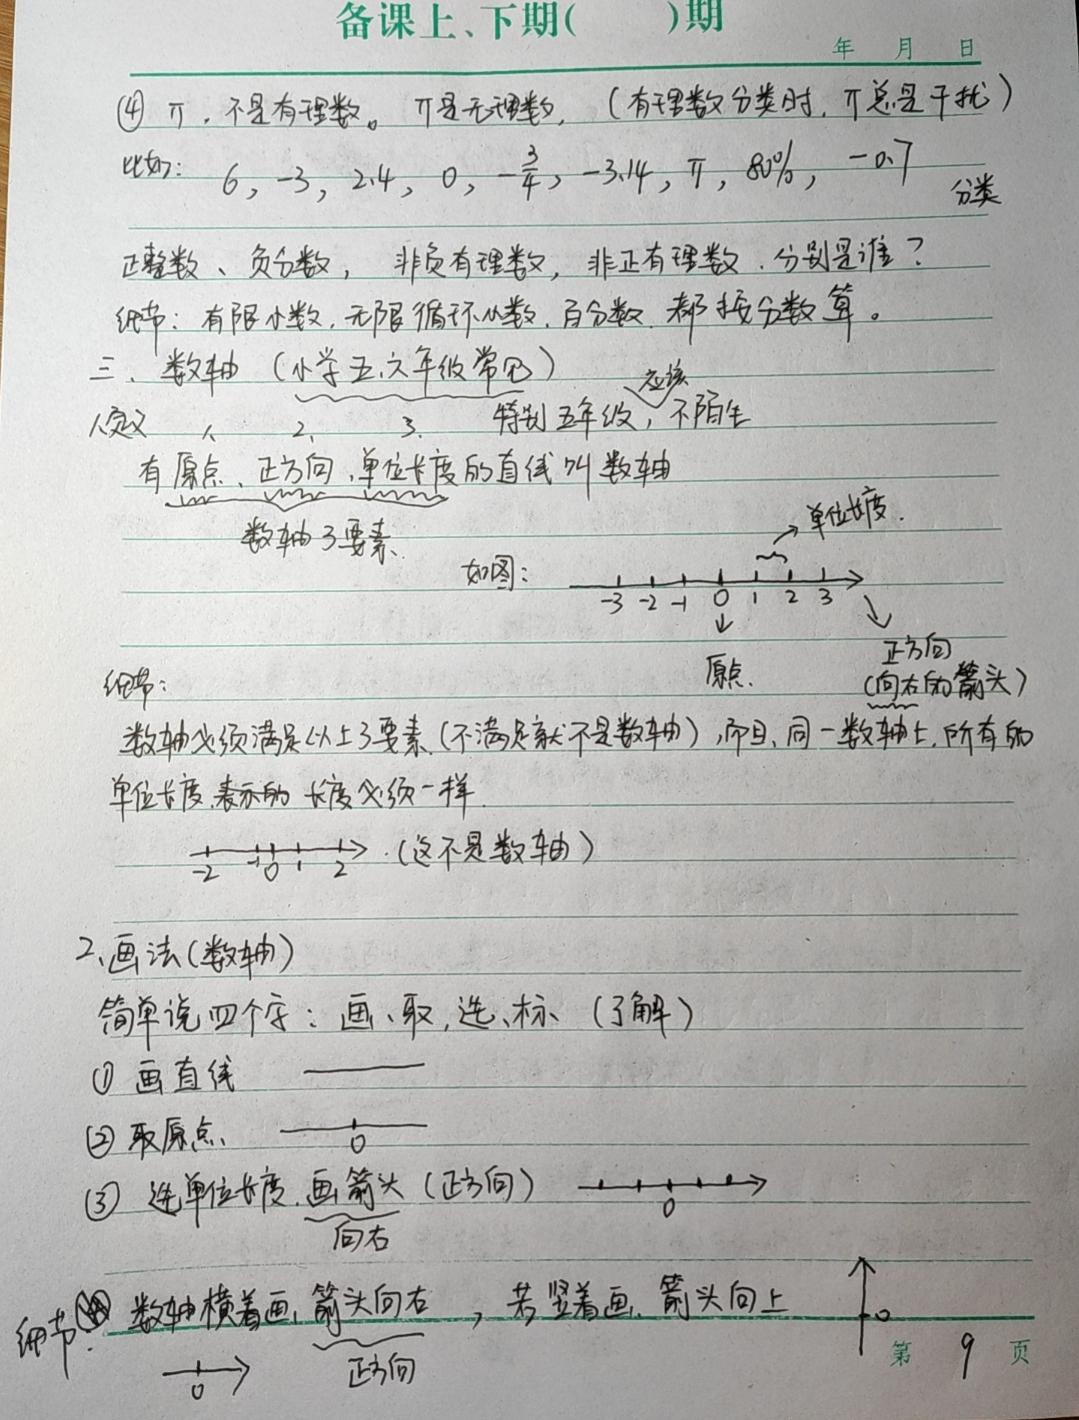 备课上、下期(  )期
年 月 日
④ π，不是有理数。π是无理数，（有理数分类时，π总是干扰）
比如：6，-3，2.4，0，-3/4，-3.14，π，80%，-0.7
分类
正整数、负分数，非负有理数，非正有理数，分别是谁？
细节：有限小数，无限循环小数，百分数，都按分数算。
三、数轴（小学五、六年级常见）
应该
1、定义 1、 2、 3、 特别五年级，不陌生
有原点、正方向、单位长度的直线叫数轴
数轴3要素、
单位长度.
如图：
-3 -2 -1 0 1 2 3
原点.
正方向
（向右的箭头）
细节：
数轴必须满足以上3要素、（不满足就不是数轴），而且，同一数轴上，所有的
单位长度，表示的长度必须一样.
-2 -1 0 1 2 （这不是数轴）
2、画法（数轴）
简单说四个字：画、取、选、标、（了解）
① 画直线
② 取原点、 0
③ 选单位长度、画箭头（正方向） 0
向右
细节： 数轴横着画，箭头向右，若竖着画，箭头向上 0
0 正方向
第 9 页